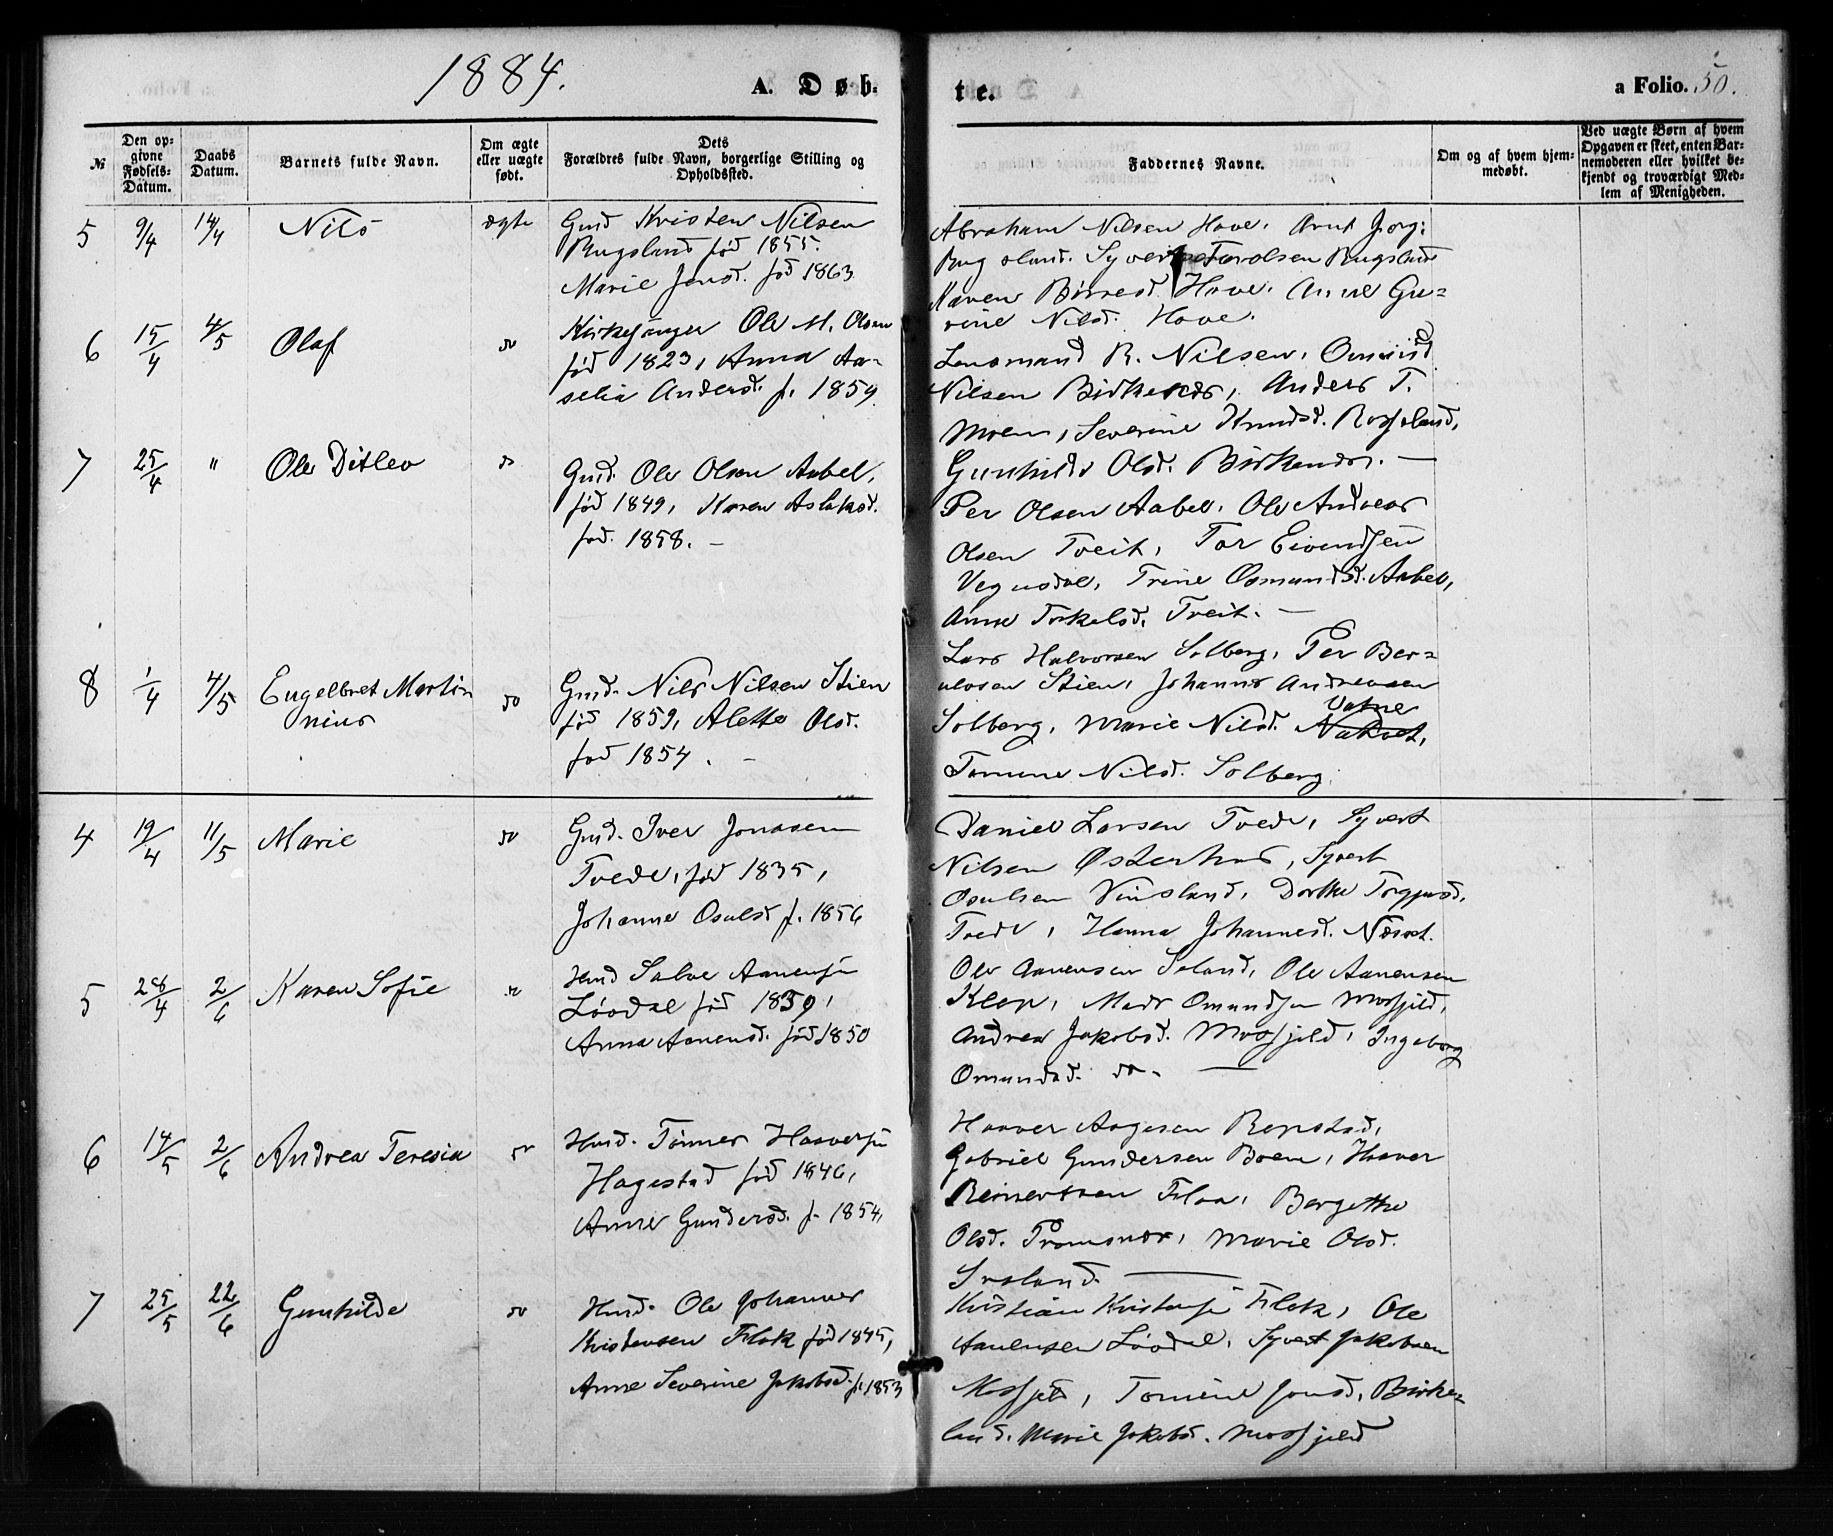 1884.
A. Døb-
te.
a Folio. 50.
№
Den op-
givne
Fødsels-
Datum.
Daabs
Datum.
Barnets fulde Navn.
Om ægte
eller uægte
født.
Dets
Forældres fulde Navn, borgerlige Stilling og
Opholdssted.
Faddernes Navne.
Om og af hvem hjem-
medøbt.
Ved uægte Børn af hvem
Opgaven er skeet, enten Bar-
nemoderen eller hvilket be-
kjendt og troværdigt Med-
lem af Menigheden.
5 9/4 14/4 Nils ægte Gmd Kristen Nilsen
Rugsland fød 1855.
Marie Jensd. fød 1863
Abraham Nilsen Hove. Arnt Jørg:
Rugsland. Syvert Tarolsen Rugsland
Karen Børresd. Hove. Anne Gu=
rine Nilsd. Hove.
6 15/4 4/5 Olaf do Kirkesanger Ole M. Olsen
fød 1823, Anna Aa-
selia Andersd. f. 1859
Lensmand R. Nilsen,
Nilsen Birkenes, Anders T.
Moen, Severine Knudsd. Rossland,
Gunhild Olsd. Birkenes. —
7 25/4 " Ole Ditlev do Gmd. Ole Olsen Aabel,
fød 1849, Karen Aslaksd.
fød. 1858. —
Per Olsen Aabel. Ole Andreas
Olsen Tveit, Tor Eivendsen
Vegusdal, Trine Osmundsd. Aabel,
Anne Torkelsd. Tveit. —
8 1/4 4/5 Engelbret Martin
nius do Gmd. Nils Nilsen Stien
fød 1859, Alette Olsd.
fød 1854. —
Lars Halvorsen Solberg, Per Ber=
ulvsen Stien, Johannes Andreassen
Solberg, Marie Nilsd. Vatne
Tomine Nilsd. Solberg.
4 19/4 11/5 Marie do Gmd. Iver Jonassen
Tvede, fød 1835,
Johanne Osulsd f. 1856
Daniel Larsen Tvede, Syvert
Nilsen Østerhus, Syvert
Osulsen Vinsland, Dorthe Torgjusd.
Tvede, Hanna Johannesd. Næset.
5 28/4 2/6 Karen Sofie do Hmd Salve Aanensen
Løvdal fød 1839,
Anna Aanensd. fød 1850
Ole Aanensen Søland, Ole Aanensen
Klep, Mads Omundsen Mosfjeld,
Andrea Jakobsd. Mosfjeld, Ingeborg
Omundsd. do. —
6 14/5 2/6 Andrea Teresia do Hmd. Tønnes Haaversen
Hagestad fød 1846,
Anne Gundersd. f. 1854,
Haaver Aagesen Repstad,
Gabriel Gundersen Boen, Haaver
Reinertsen Flaa, Bergette
Olsd. Tromsnes, Marie Olsd.
7 25/5 22/6 Gunhilde do Hmd. Ole Johannes
Kristensen Flak fød 1845,
Anne Severine Jakobsd. f. 1853
Kristian Kristensen Flak, Ole
Aanensen Løvdal, Syvert Jakobsen
Mosfjeld, Tomine Jensd. Birke=
land, Marie Jakobsd. Mosfjeld